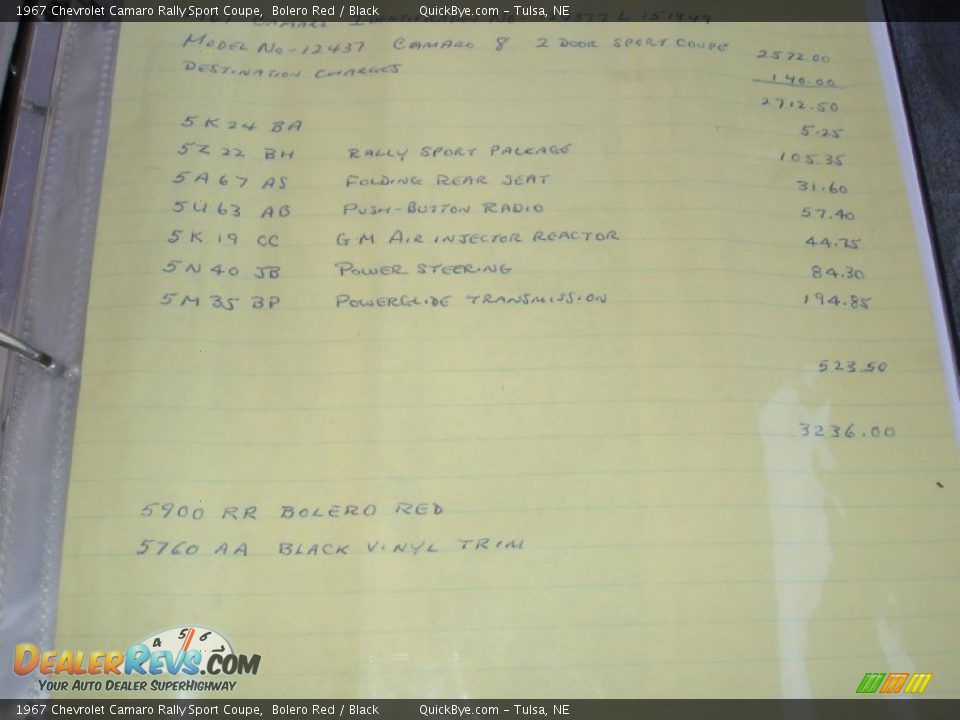 1967 Chevrolet Camaro Rally Sport Coupe, Bolero Red / Black QuickBye.com – Tulsa, NE
MODEL NO-12437 CAMARO 8 2 DOOR SPORT COUPE 2572.00
DESTINATION CHARGES 140.00
2712.50
5K24 BA 5.25
5Z22 BH RALLY SPORT PACKAGE 105.35
5A67 AS FOLDING REAR SEAT 31.60
5U63 AB PUSH-BUTTON RADIO 57.40
5K19 CC GM AIR INJECTOR REACTOR 44.75
5N40 JB POWER STEERING 84.30
5M35 BP POWERGLIDE TRANSMISSION 194.85
523.50
3236.00
5900 RR BOLERO RED
5760 AA BLACK VINYL TRIM
4 5 6
DEALERREVS.COM
YOUR AUTO DEALER SUPERHIGHWAY
1967 Chevrolet Camaro Rally Sport Coupe, Bolero Red / Black QuickBye.com – Tulsa, NE